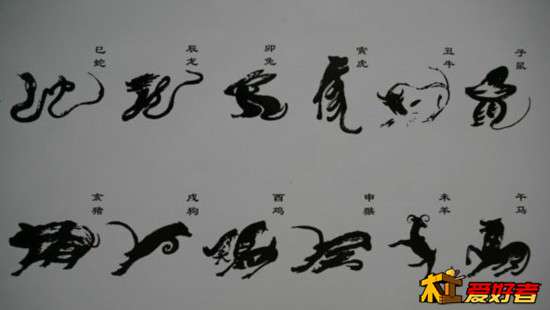 子鼠
丑牛
寅虎
卯兔
辰龙
巳蛇
午马
未羊
申猴
酉鸡
戌狗
亥猪
木工爱好者